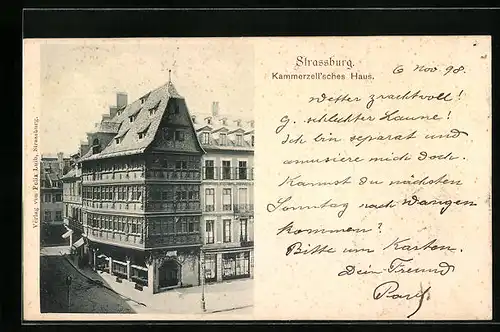 Strassburg.
Kammerzell'sches Haus.
Verlag von Felix Luib, Strassburg.
6 Nov. 98.
Wetter prachtvoll!
g. schlechter Laune!
Ich bin separat und
amusiere mich doch.
Kannst du nächsten
Sonntag nach Wangen
kommen?
Bitte um Karten.
Dein Freund